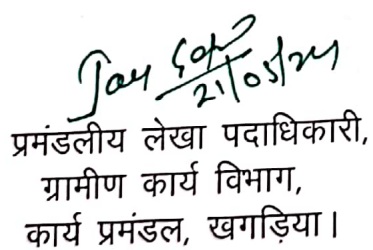 21/05/24
प्रमंडलीय लेखा पदाधिकारी,
ग्रामीण कार्य विभाग,
कार्य प्रमंडल, खगड़िया।